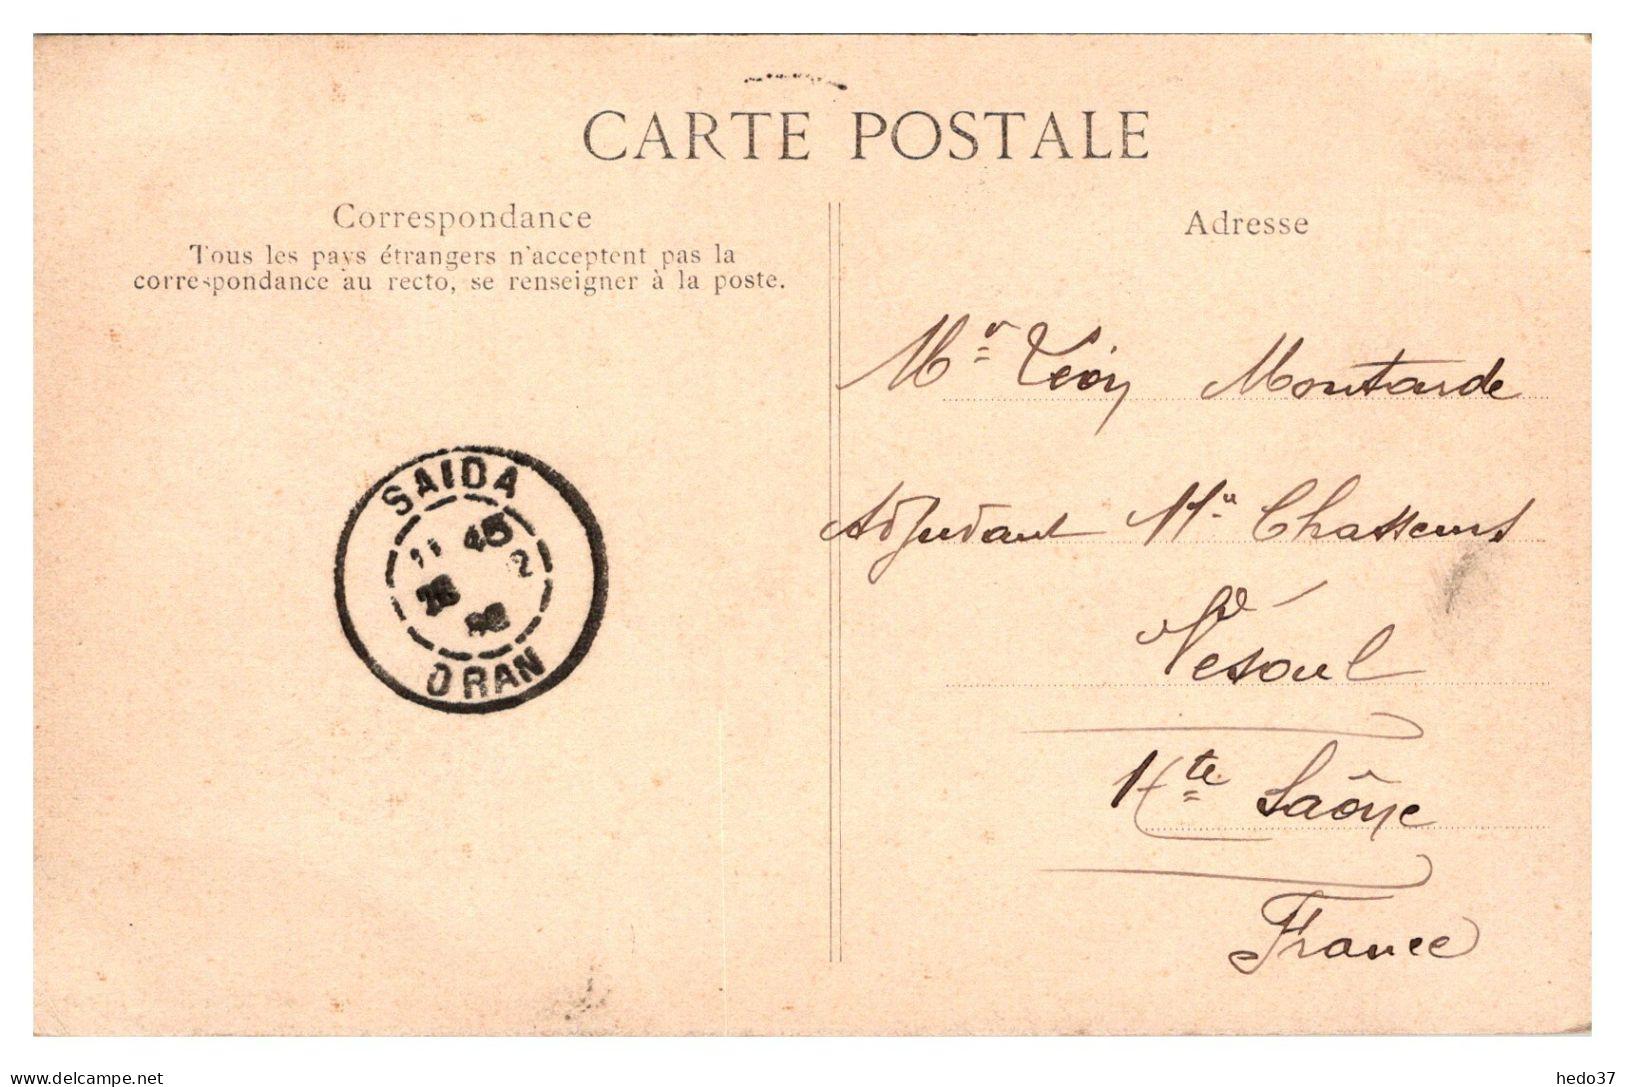 CARTE POSTALE
Correspondance
Tous les pays étrangers n'acceptent pas la
correspondance au recto, se renseigner à la poste.
Adresse
Mr Léon Moutarde
Adjudant 11e Chasseurs
Vesoul
Hte Saône
France
SAIDA
11 45
2
ORAN
delcampe.net
hedo37